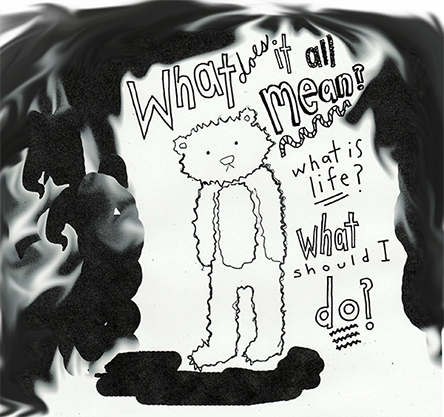 What does it all
mean?
what is
life?
What
should I
do?